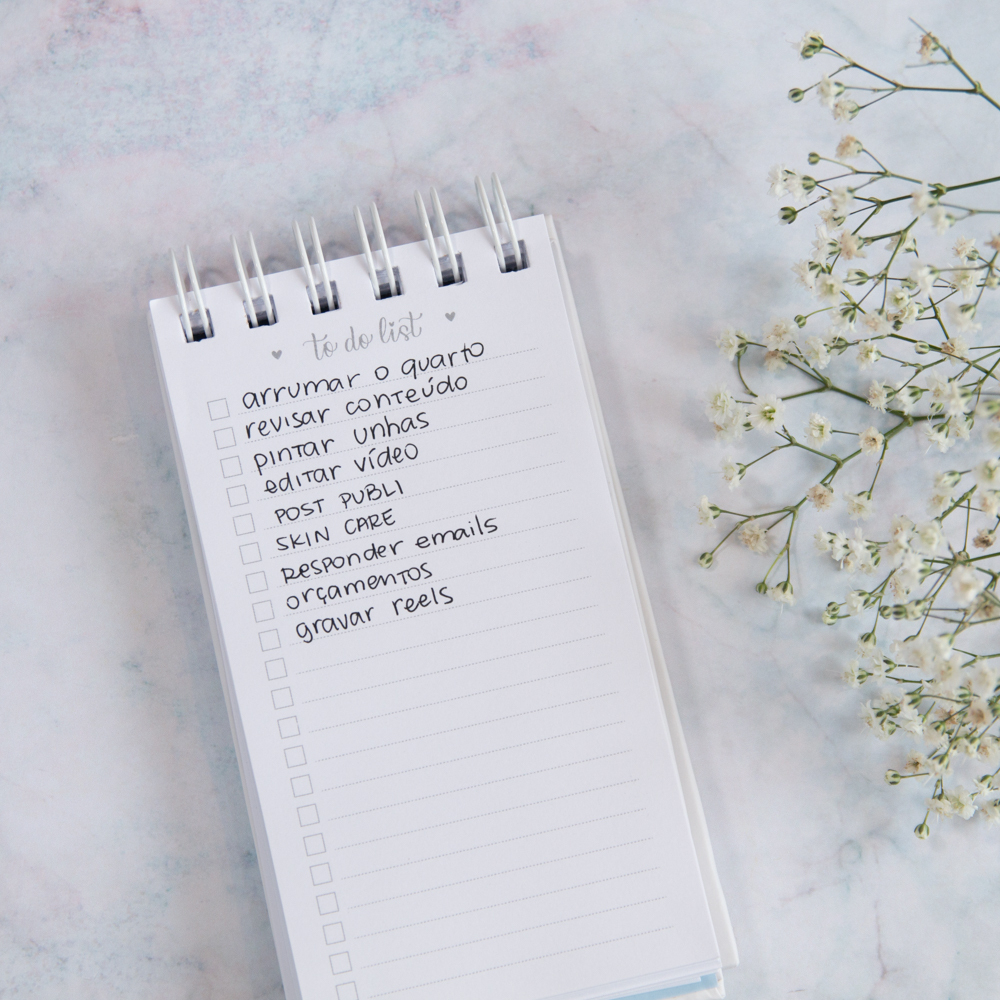 to do list
arrumar o quarto
revisar conteúdo
pintar unhas
editar vídeo
POST PUBLI
SKIN CARE
Responder emails
orçamentos
gravar reels